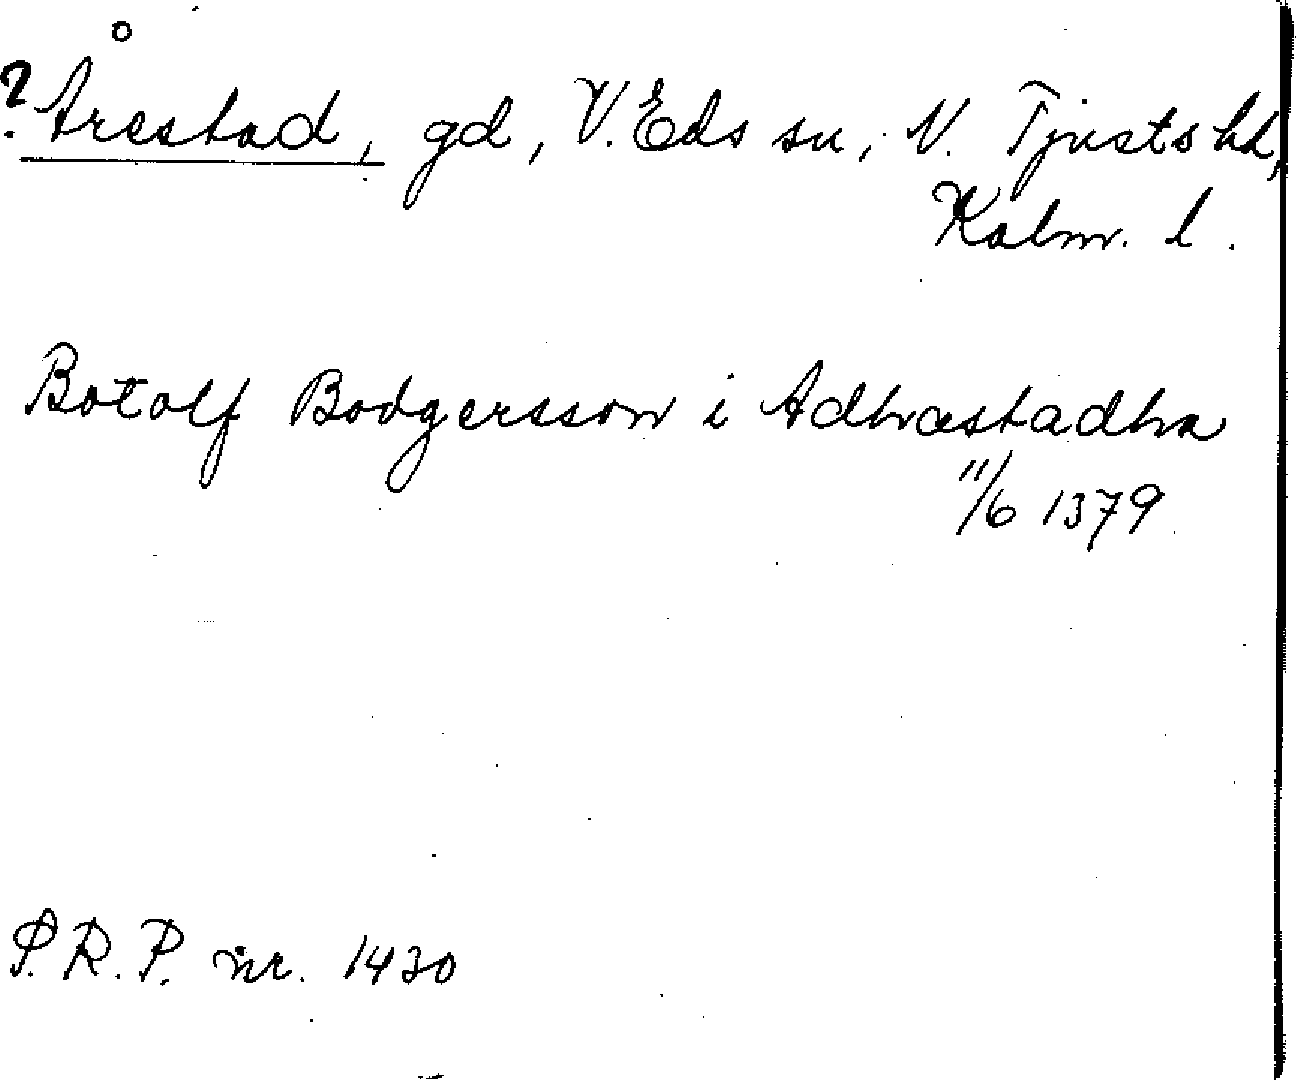 ? Årestad, gd, V. Eds sn, N. Tjusts hd,
Kalm. l.
Botolf Bodgersson i Adhræstadha
11/6 1379
P.R.P. nr. 1430